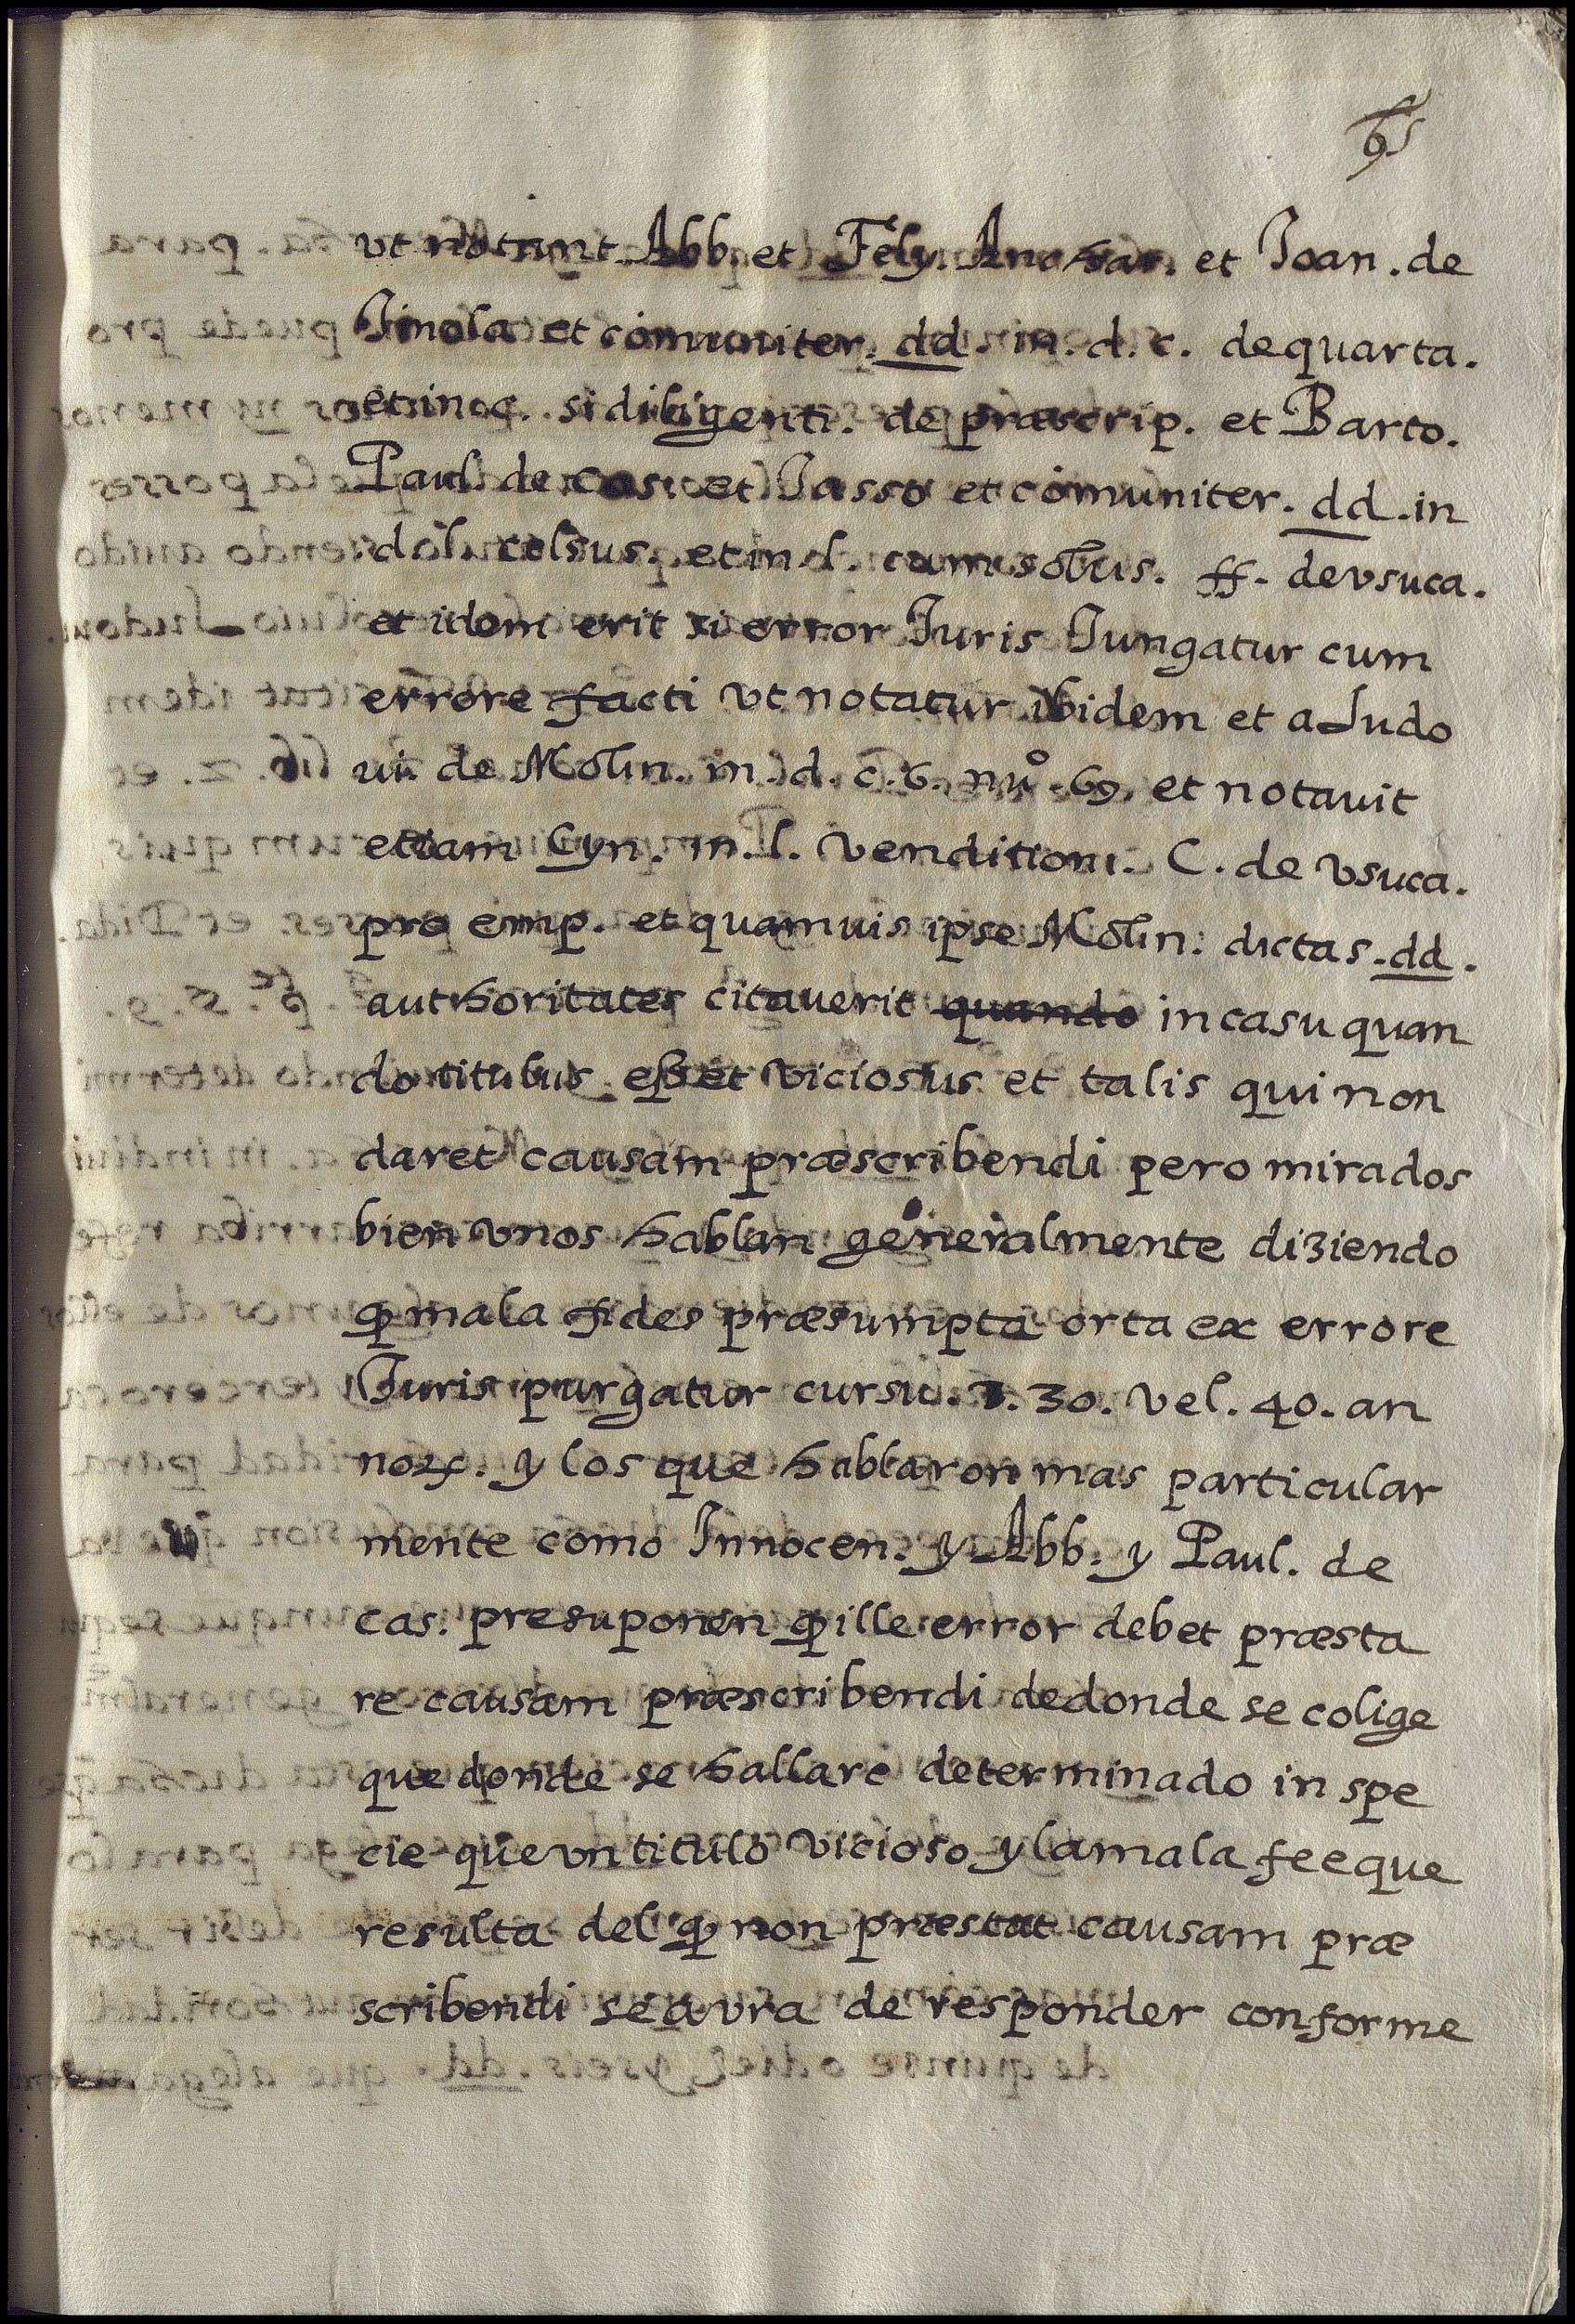 65
vt notant Abb. et Fely. Anchar. et Joan. de
Jmola et comuniter. dd. in. d. c. de quarta.
et in c. si diligenti. de præscrip. et Barto.
Paul. de cas. et Jasso et comuniter. dd. in
d. l. celsus. et in l. cum solus. ff. de vsuca.
et idem erit si error Juris Jungatur cum
errore facti vt notatur ibidem et a Ludo
ui. de Molin. in. d. c. 6. nuº. 69. et notauit
etiam Cyn. in. l. venditioni. C. de vsuca.
pro emp. et quamuis ipse Molin. dictas. dd.
authoritates citauerit quando in casu quan
do titulus esset viciosus et talis qui non
daret causam præscribendi pero mirados
bien vnos hablan generalmente diziendo
ꝙ mala fides præsumpta orta ex errore
Juris purgatur cursu. 30. vel. 40. an
noꝝ. y los que hablaron mas particular
mente como Innocen. y Abb. y Paul. de
cas. presuponen ꝙ ille error debet præsta
re causam præscribendi de donde se colige
que donde se hallare determinado in spe
cie que vn titulo vicioso y la mala fee que
resulta del ꝙ non præstat causam præ
scribendi se avra de responder conforme